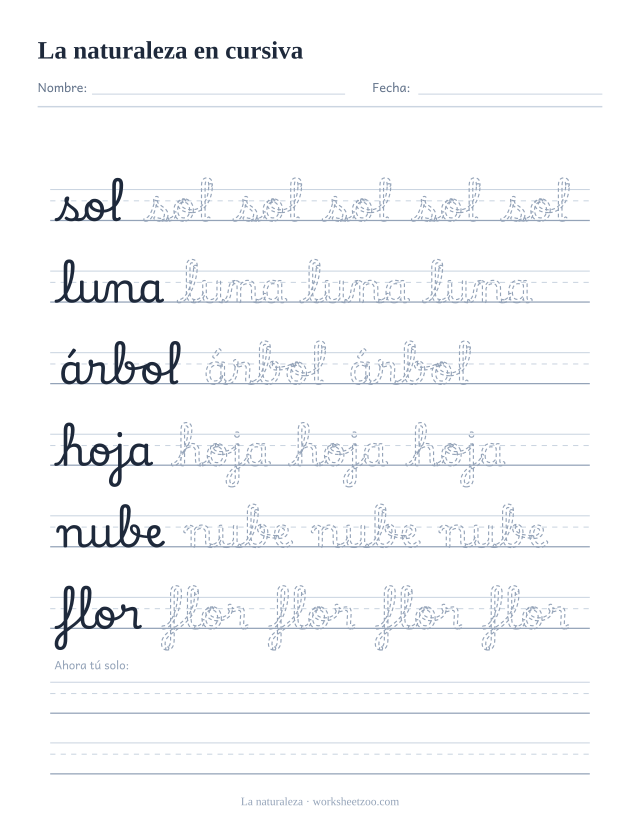 La naturaleza en cursiva
Nombre: Fecha:
sol sol sol sol sol sol
luna luna luna luna
árbol árbol árbol
hoja hoja hoja hoja
nube nube nube nube
flor flor flor flor flor
Ahora tú solo:
La naturaleza · worksheetzoo.com